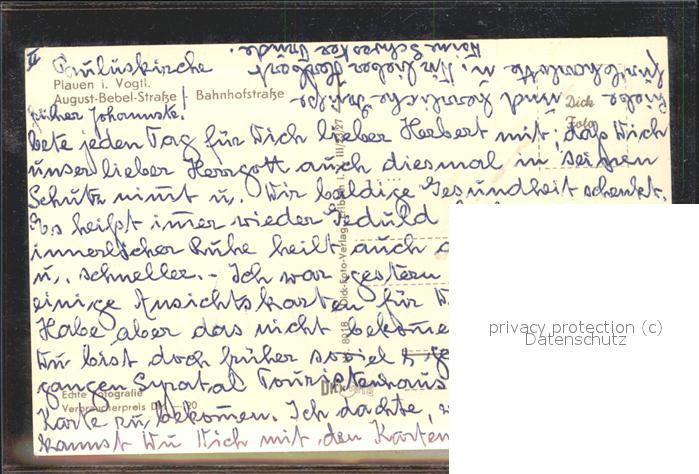 II Pauluskirche
Plauen i. Vogtl.
August-Bebel-Straße / Bahnhofstraße
früher Johannstr.
bete jeden Tag für Dich lieber Herbert mit, daß Dich
unser lieber Herrgott auch diesmal in seinen
Schutz nimt u. Dir baldige Gesundheit schenkt.
Es heißt imer wieder Geduld
innerlicher Ruhe heilt auch
u. schneller. - Ich war gestern
einige Ansichtskarten für
Habe aber das nicht bekome
Du bist doch früher soviel
gangen Syratal Touristenhaus
Karte zu bekomen. Ich dachte,
kannst Du Dich mit den Karten
Liebe und herzliche Grüße
für Dich lieber Herbert
Deine Schwester
Dick
Foto
Dick-Foto-Verlag, Erlbach i. V. III/27
8018
Echte Fotografie
Verbraucherpreis
privacy protection (c)
Datenschutz